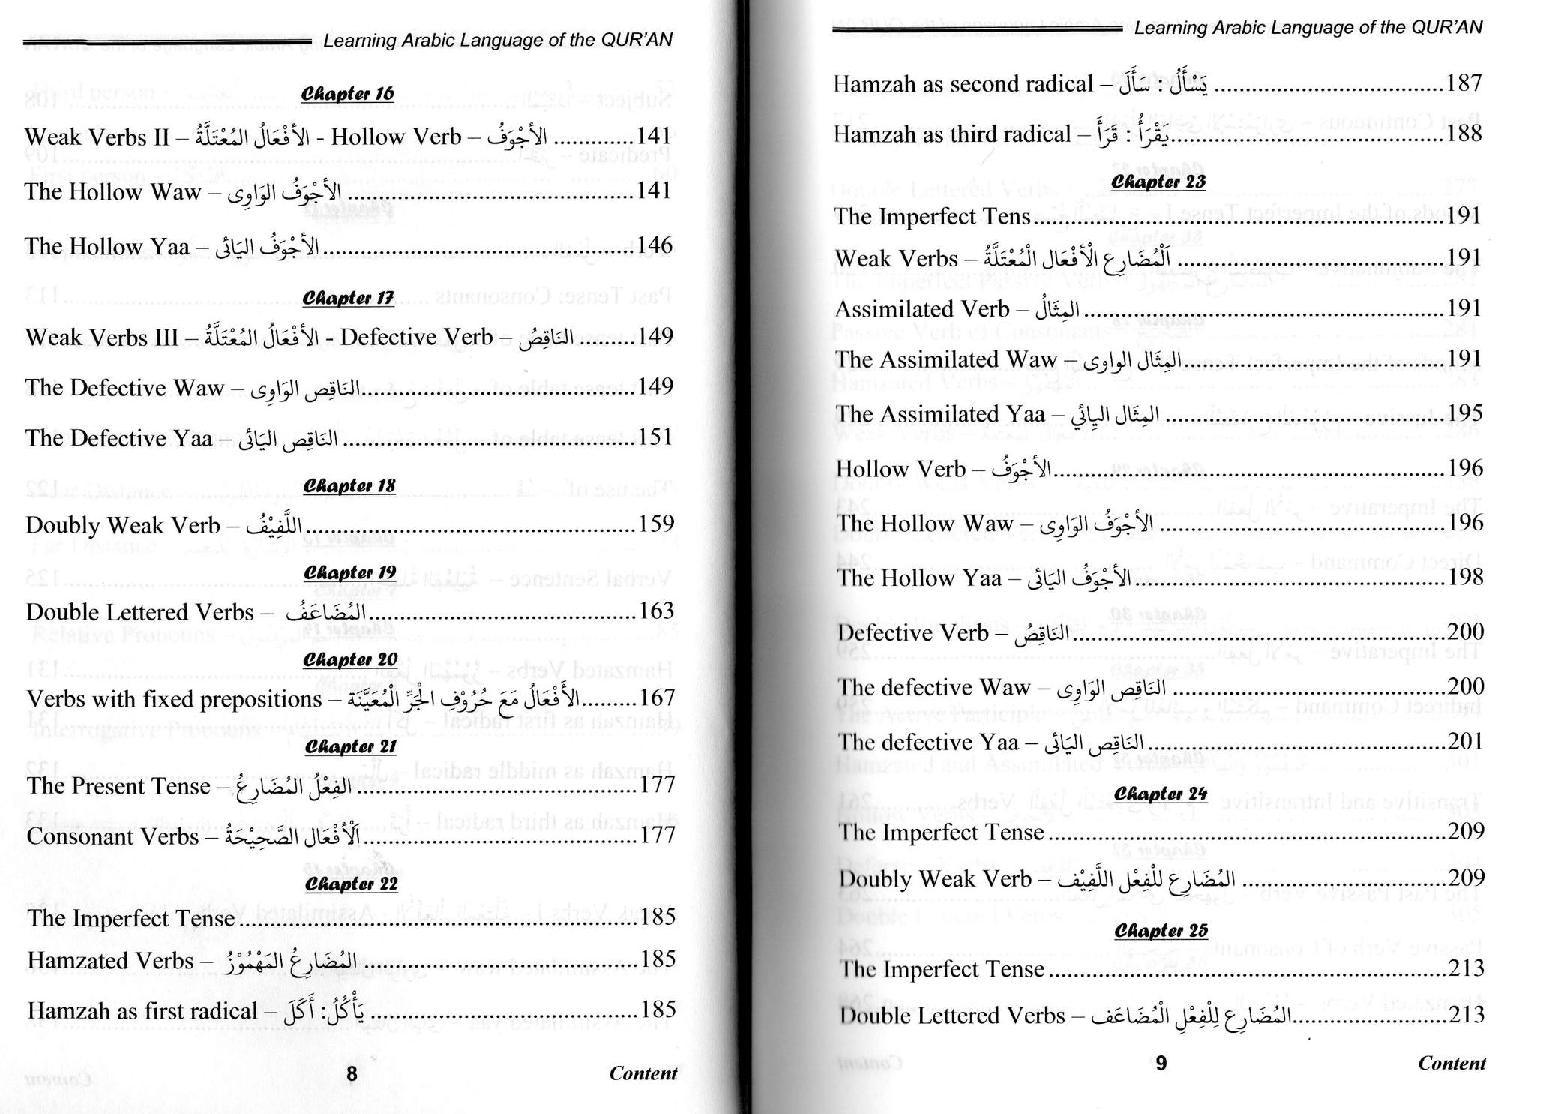 Learning Arabic Language of the QUR'AN
Chapter 16
Weak Verbs II – الأَفْعَالُ المُعْتَلَّةُ - Hollow Verb – الأَجْوَفُ ............141
The Hollow Waw – الأَجْوَفُ الوَاوِى ................................141
The Hollow Yaa – الأَجْوَفُ اليَائى ................................146
Chapter 17
Weak Verbs III – الأَفْعَالُ المُعْتَلَّةُ - Defective Verb – النَاقِصُ .........149
The Defective Waw – النَاقِص الوَاوِى ................................149
The Defective Yaa – النَاقِص اليَائى ................................151
Chapter 18
Doubly Weak Verb – اللَّفِيْفُ ................................159
Chapter 19
Double Lettered Verbs – المُضَاعَفُ ................................163
Chapter 20
Verbs with fixed prepositions – الأَفْعَالُ مَعَ حُرُوْفِ الجَرِّ الْمُعَيَّنَة .........167
Chapter 21
The Present Tense – الفِعْلُ المُضَارِعُ ................................177
Consonant Verbs – اَلْأَفْعَال الصَّحِيْحَةُ ................................177
Chapter 22
The Imperfect Tense ................................185
Hamzated Verbs – المُضَارِعُ المَهْمُوْزُ ................................185
Hamzah as first radical – أَكَلَ : يَأْكُلُ ................................185
8
Content
Learning Arabic Language of the QUR'AN
Hamzah as second radical – سَأَلَ : يَسْأَلُ ................................187
Hamzah as third radical – قَرَأَ : يَقْرَأُ ................................188
Chapter 23
The Imperfect Tens ................................191
Weak Verbs – اَلْمُضَارِع الْأَفْعَال الْمُعْتَلَّةُ ................................191
Assimilated Verb – المِثَالُ ................................191
The Assimilated Waw – المِثَال الواوى ................................191
The Assimilated Yaa – المِثَال اليائي ................................195
Hollow Verb – الأَجْوَفُ ................................196
The Hollow Waw – الأَجْوَفُ الوَاوِى ................................196
The Hollow Yaa – الأَجْوَفُ اليَائى ................................198
Defective Verb – النَاقِصُ ................................200
The defective Waw – النَاقِص الوَاوِى ................................200
The defective Yaa – النَاقِص اليَائى ................................201
Chapter 24
The Imperfect Tense ................................209
Doubly Weak Verb – المُضَارِع لِلْفِعْلِ اللَّفِيْف ................................209
Chapter 25
The Imperfect Tense ................................213
Double Lettered Verbs – المُضَارِع لِلْفِعْلِ الْمُضَاعَف ................................213
9
Content